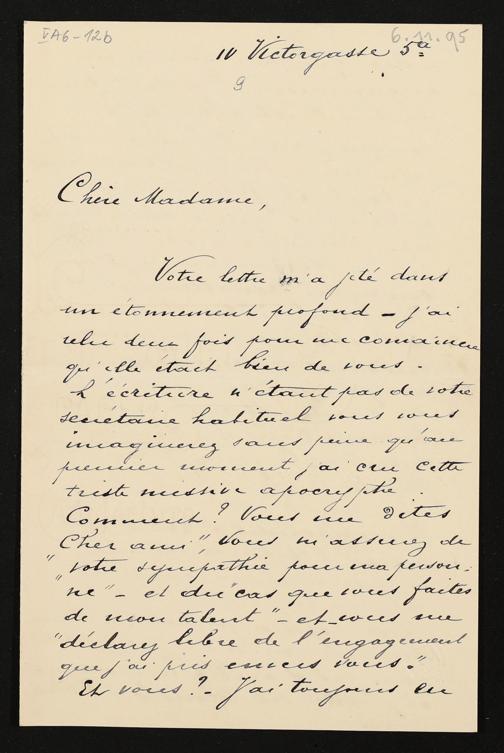 VA6-12b
6.11.95
IV Victorgasse 5a
9
Chère Madame,
Votre lettre m'a jeté dans
un étonnement profond – j'ai
relu deux fois pour me convaincre
qu'elle était bien de vous.
L'écriture n'étant pas de votre
secrétaire habituel vous vous
imaginerez sans peine qu'au
premier moment j'ai cru cette
triste missive apocryphe.
Comment? Vous me dites
Cher ami", vous m'assurez de
"votre sympathie pour ma person-
"ne" – et du "cas que vous faites
de mon talent" – et vous me
"déclarez libre de l'engagement
que j'ai pris envers vous."
Et vous? – J'ai toujours eu